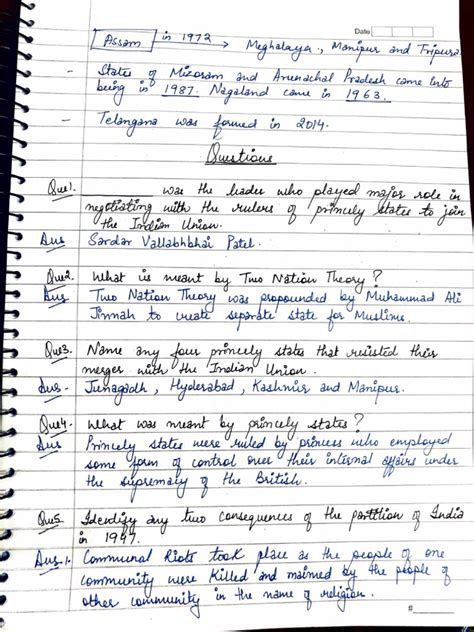 Date
Assam in 1972 → Meghalaya, Manipur and Tripura
- States of Mizoram and Arunachal Pradesh came into
being in 1987. Nagaland came in 1963.
- Telangana was formed in 2014.
Questions
Que1. ________ was the leader who played major role in
negotiating with the rulers of princely states to join
the Indian Union.
Ans Sardar Vallabhbhai Patel.
Que2. What is meant by Two Nation Theory?
Ans. Two Nation Theory was propounded by Muhammad Ali
Jinnah to create separate state for Muslims.
Que3. Name any four princely states that resisted their
merger with the Indian Union.
Ans. Junagadh, Hyderabad, Kashmir and Manipur.
Que4. What was meant by princely states?
Ans Princely states were ruled by princess who employed
some form of control over their internal affairs under
the supremacy of the British.
Que5. Identify any two consequences of the partition of India
in 1947.
Ans.1. Communal Riots took place as the people of one
community were killed and maimed by the people of
other community in the name of religion.
#